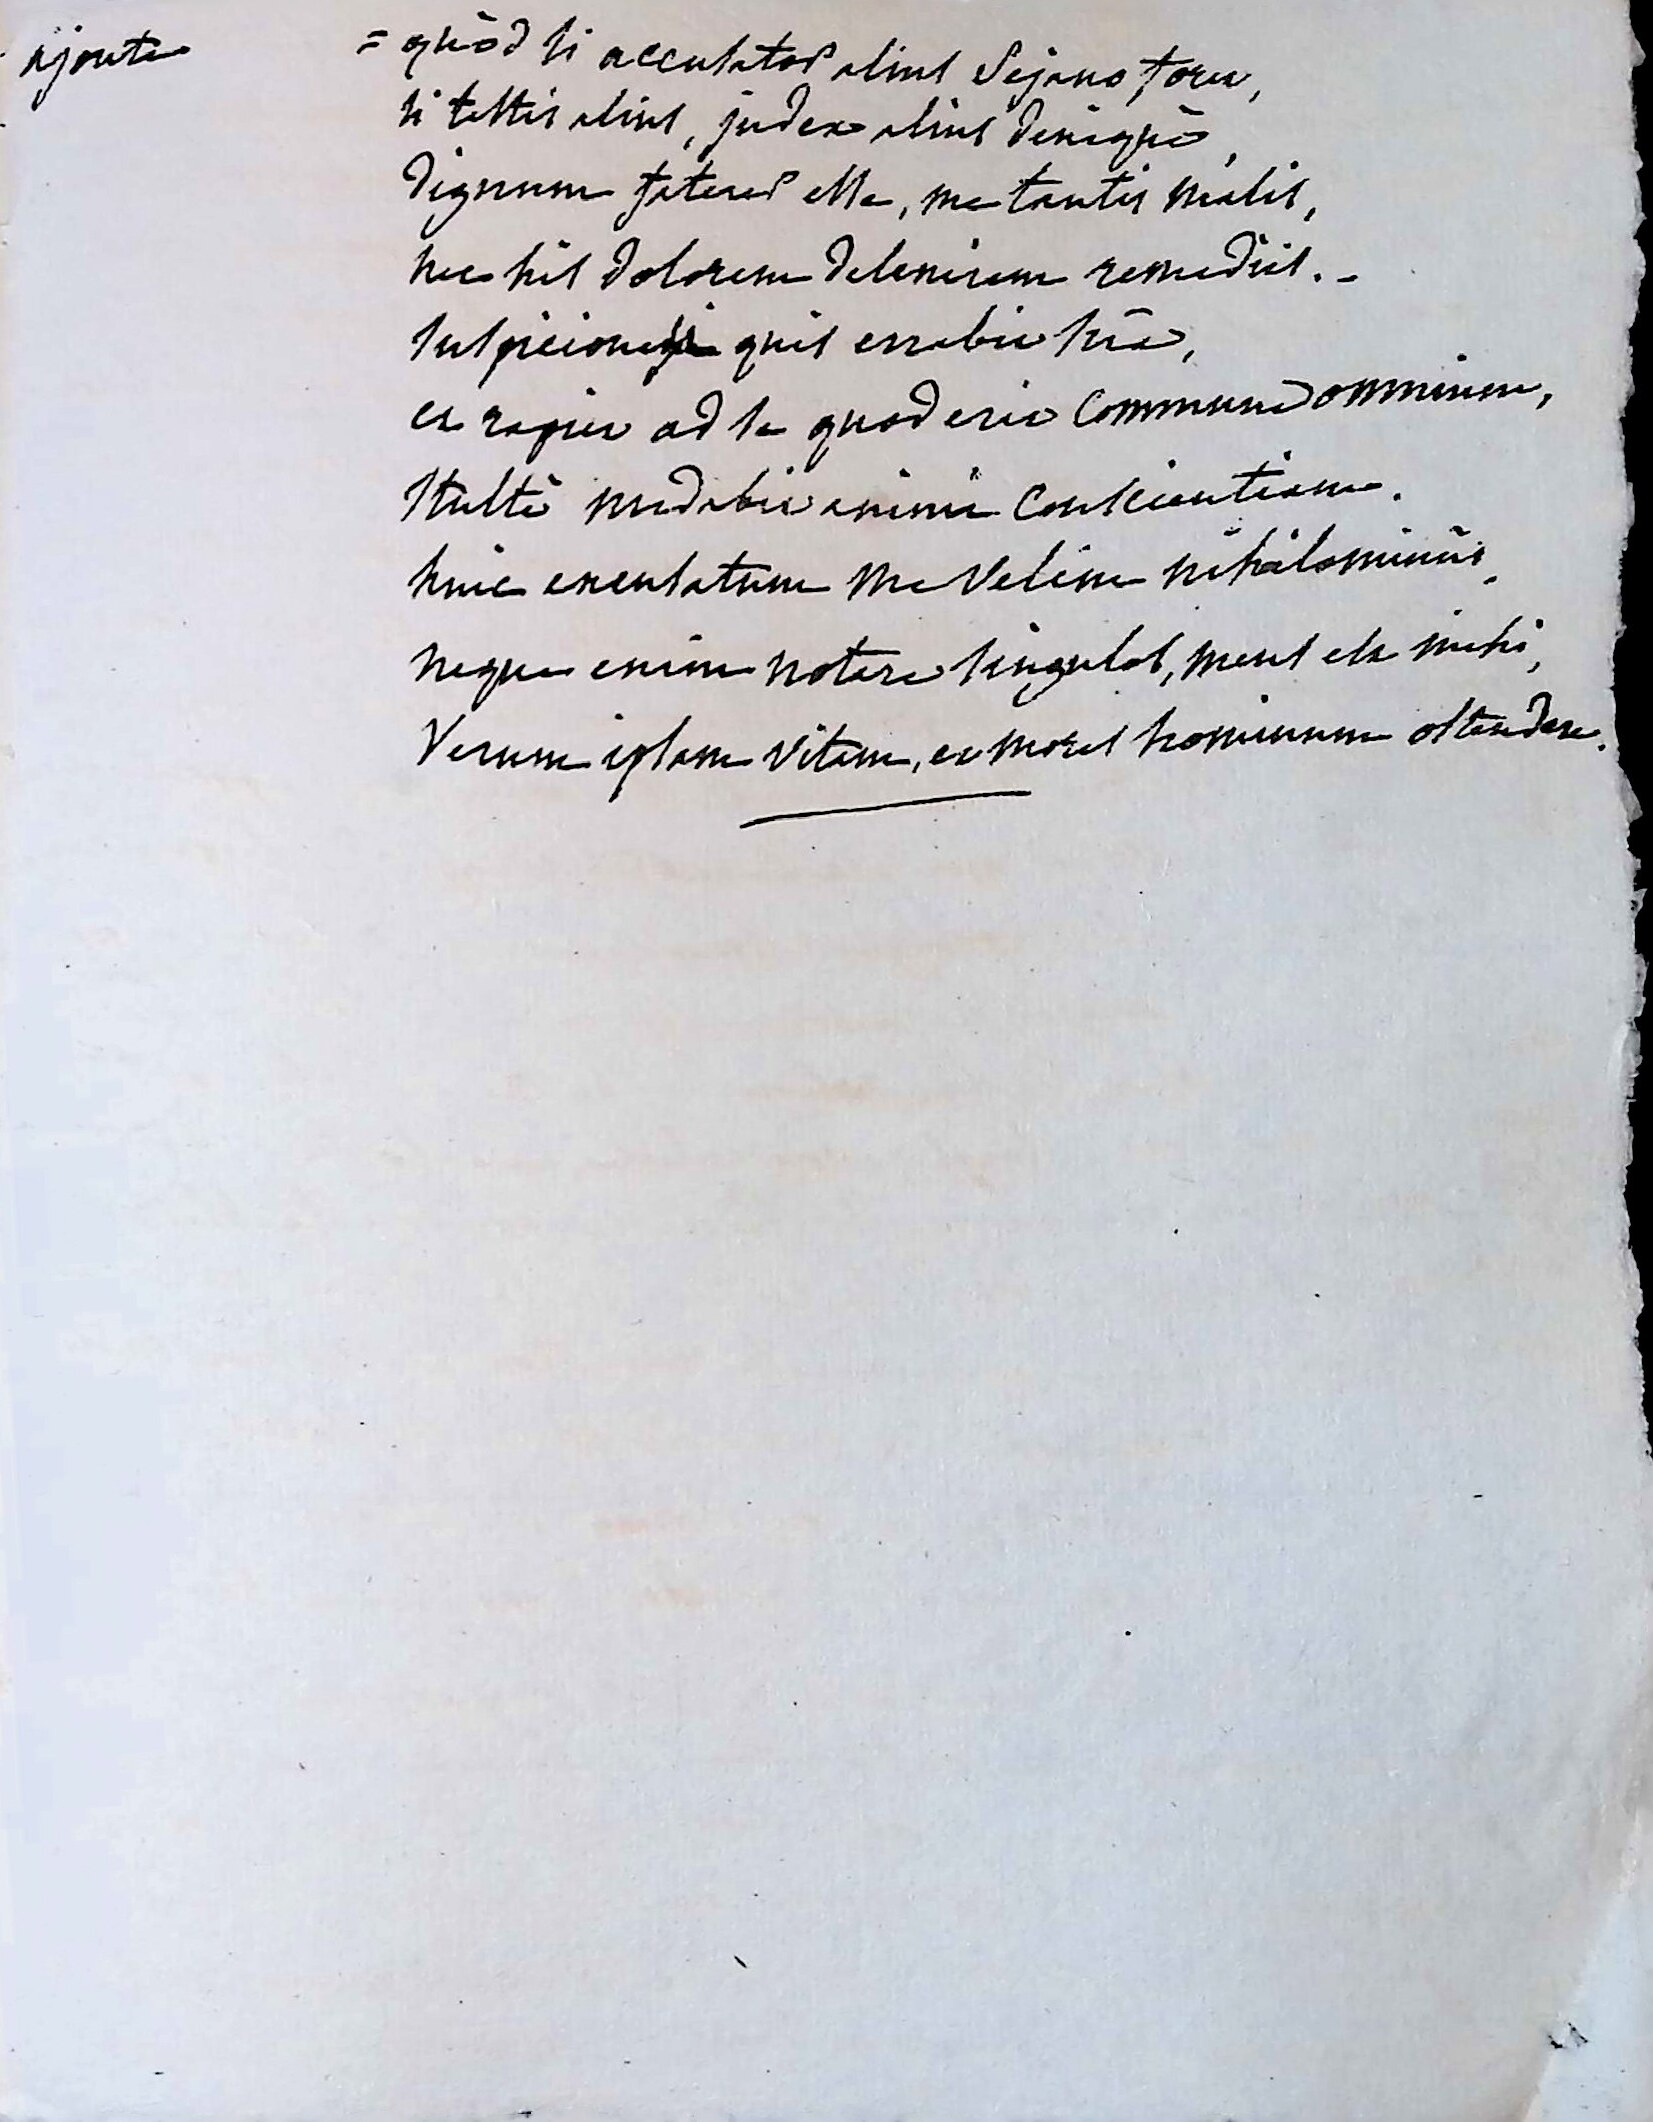 ajoute
= quòd si accusator alius Sejano foret,
si testis alius, judex alius denique,
Dignum faterer esse, me tantis malis,
nec his dolorem delenirem remediis. -
suspicione si quis errabit suâ,
et rapiet ad se quod erit commune omnium,
stultè nudabit animi conscientiam.
huic excusatum me velim nihilominùs,
neque enim notare singulos, mens est mihi,
Verum ipsam vitam, et mores hominum ostendere.